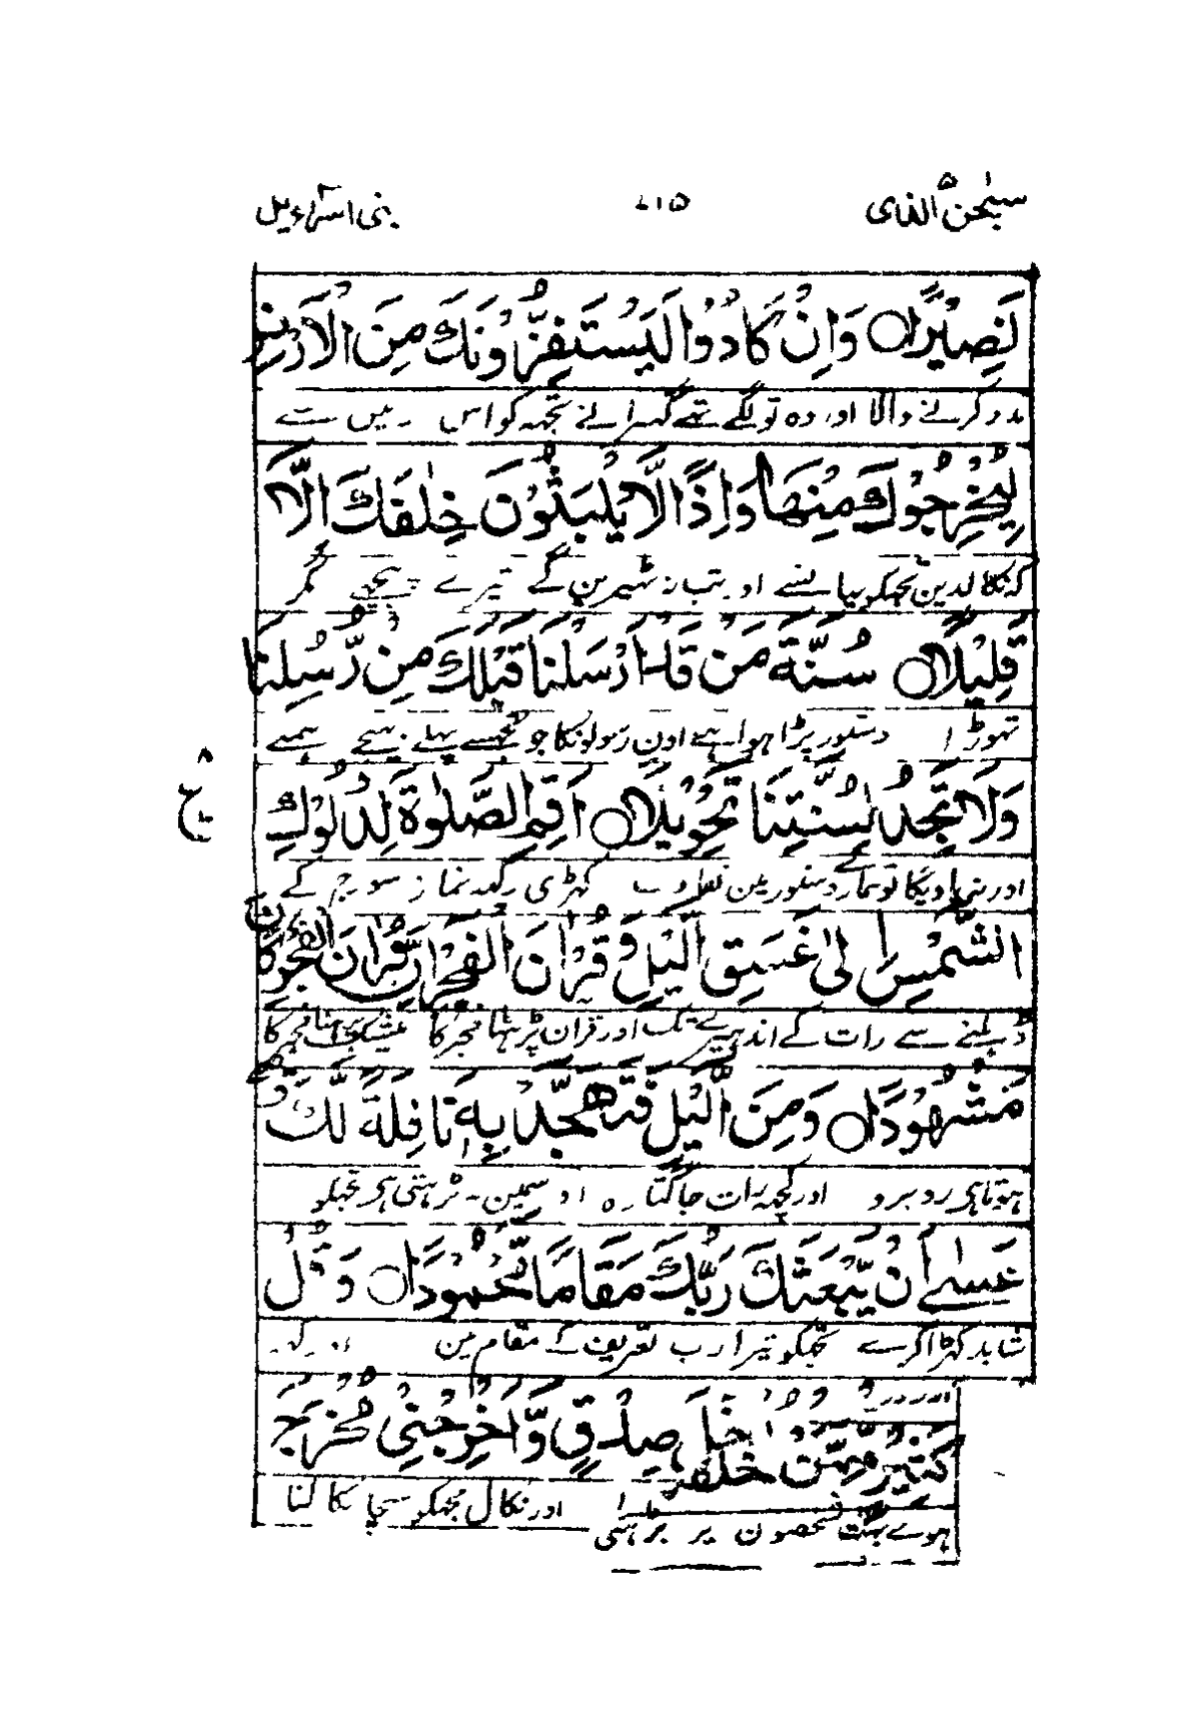 سبحن الذی ۱۵ بنی اسرآءیل
نَصِيْرًا ○ وَاِنْ كَادُوْا لَيَسْتَفِزُّوْنَكَ مِنَ الْاَرْضِ
مدد کرنے والا اور وہ تو لگے تھے گھبرانے تجھہ کو اس زمین سے
لِيُخْرِجُوْكَ مِنْهَا وَاِذًا لَّا يَلْبَثُوْنَ خِلٰفَكَ اِلَّا
کہ نکالدین تجھکو یہانسے اور تب نہ ٹھیرین گے تیرے پیچھے مگر
قَلِيْلًا ○ سُنَّةَ مَنْ قَدْ اَرْسَلْنَا قَبْلَكَ مِنْ رُّسُلِنَا
تھوڑا دستور پڑا ہوا ہے اون رسولونکا جو تجھسے پہلے بھیجے ہمنے
وَلَا تَجِدُ لِسُنَّتِنَا تَحْوِيْلًا ○ اَقِمِ الصَّلٰوةَ لِدُلُوْكِ
ع
اور نہ پاویگا تو ہمارے دستور مین تفاوت کھڑی رکھہ نماز سورج کے
الشَّمْسِ اِلٰى غَسَقِ الَّيْلِ وَقُرْاٰنَ الْفَجْرِ اِنَّ قُرْاٰنَ الْفَجْرِ كَانَ
ڈہلنے سے رات کے اندہیرے تک اور قرآن پڑہنا فجر کا بیشک پڑہنا فجر کا
مَشْهُوْدًا ○ وَمِنَ الَّيْلِ فَتَهَجَّدْ بِهٖ نَافِلَةً لَّكَ
ہوتا ہی روبرو اور کچھہ رات جاگتا رہ اوسمین بڑہتی ہی تجھکو
عَسٰٓى اَنْ يَّبْعَثَكَ رَبُّكَ مَقَامًا مَّحْمُوْدًا ○ وَقُلْ
شاید کھڑا کرے تجھکو تیرا رب تعریف کے مقام مین اور کہہ
صِدْقٍ وَّاَخْرِجْنِيْ مُخْرَجَ
كَثِيْرٍ مِّمَّنْ خَلَقْ
اور نکال مجھکو سچا نکالنا
ہوے بہت شخصون پر بڑہتی